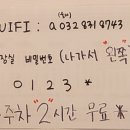 WIFI : a0328319743
장실 비밀번호 (나가서 왼쪽)
0123*
주차 "2"시간 무료